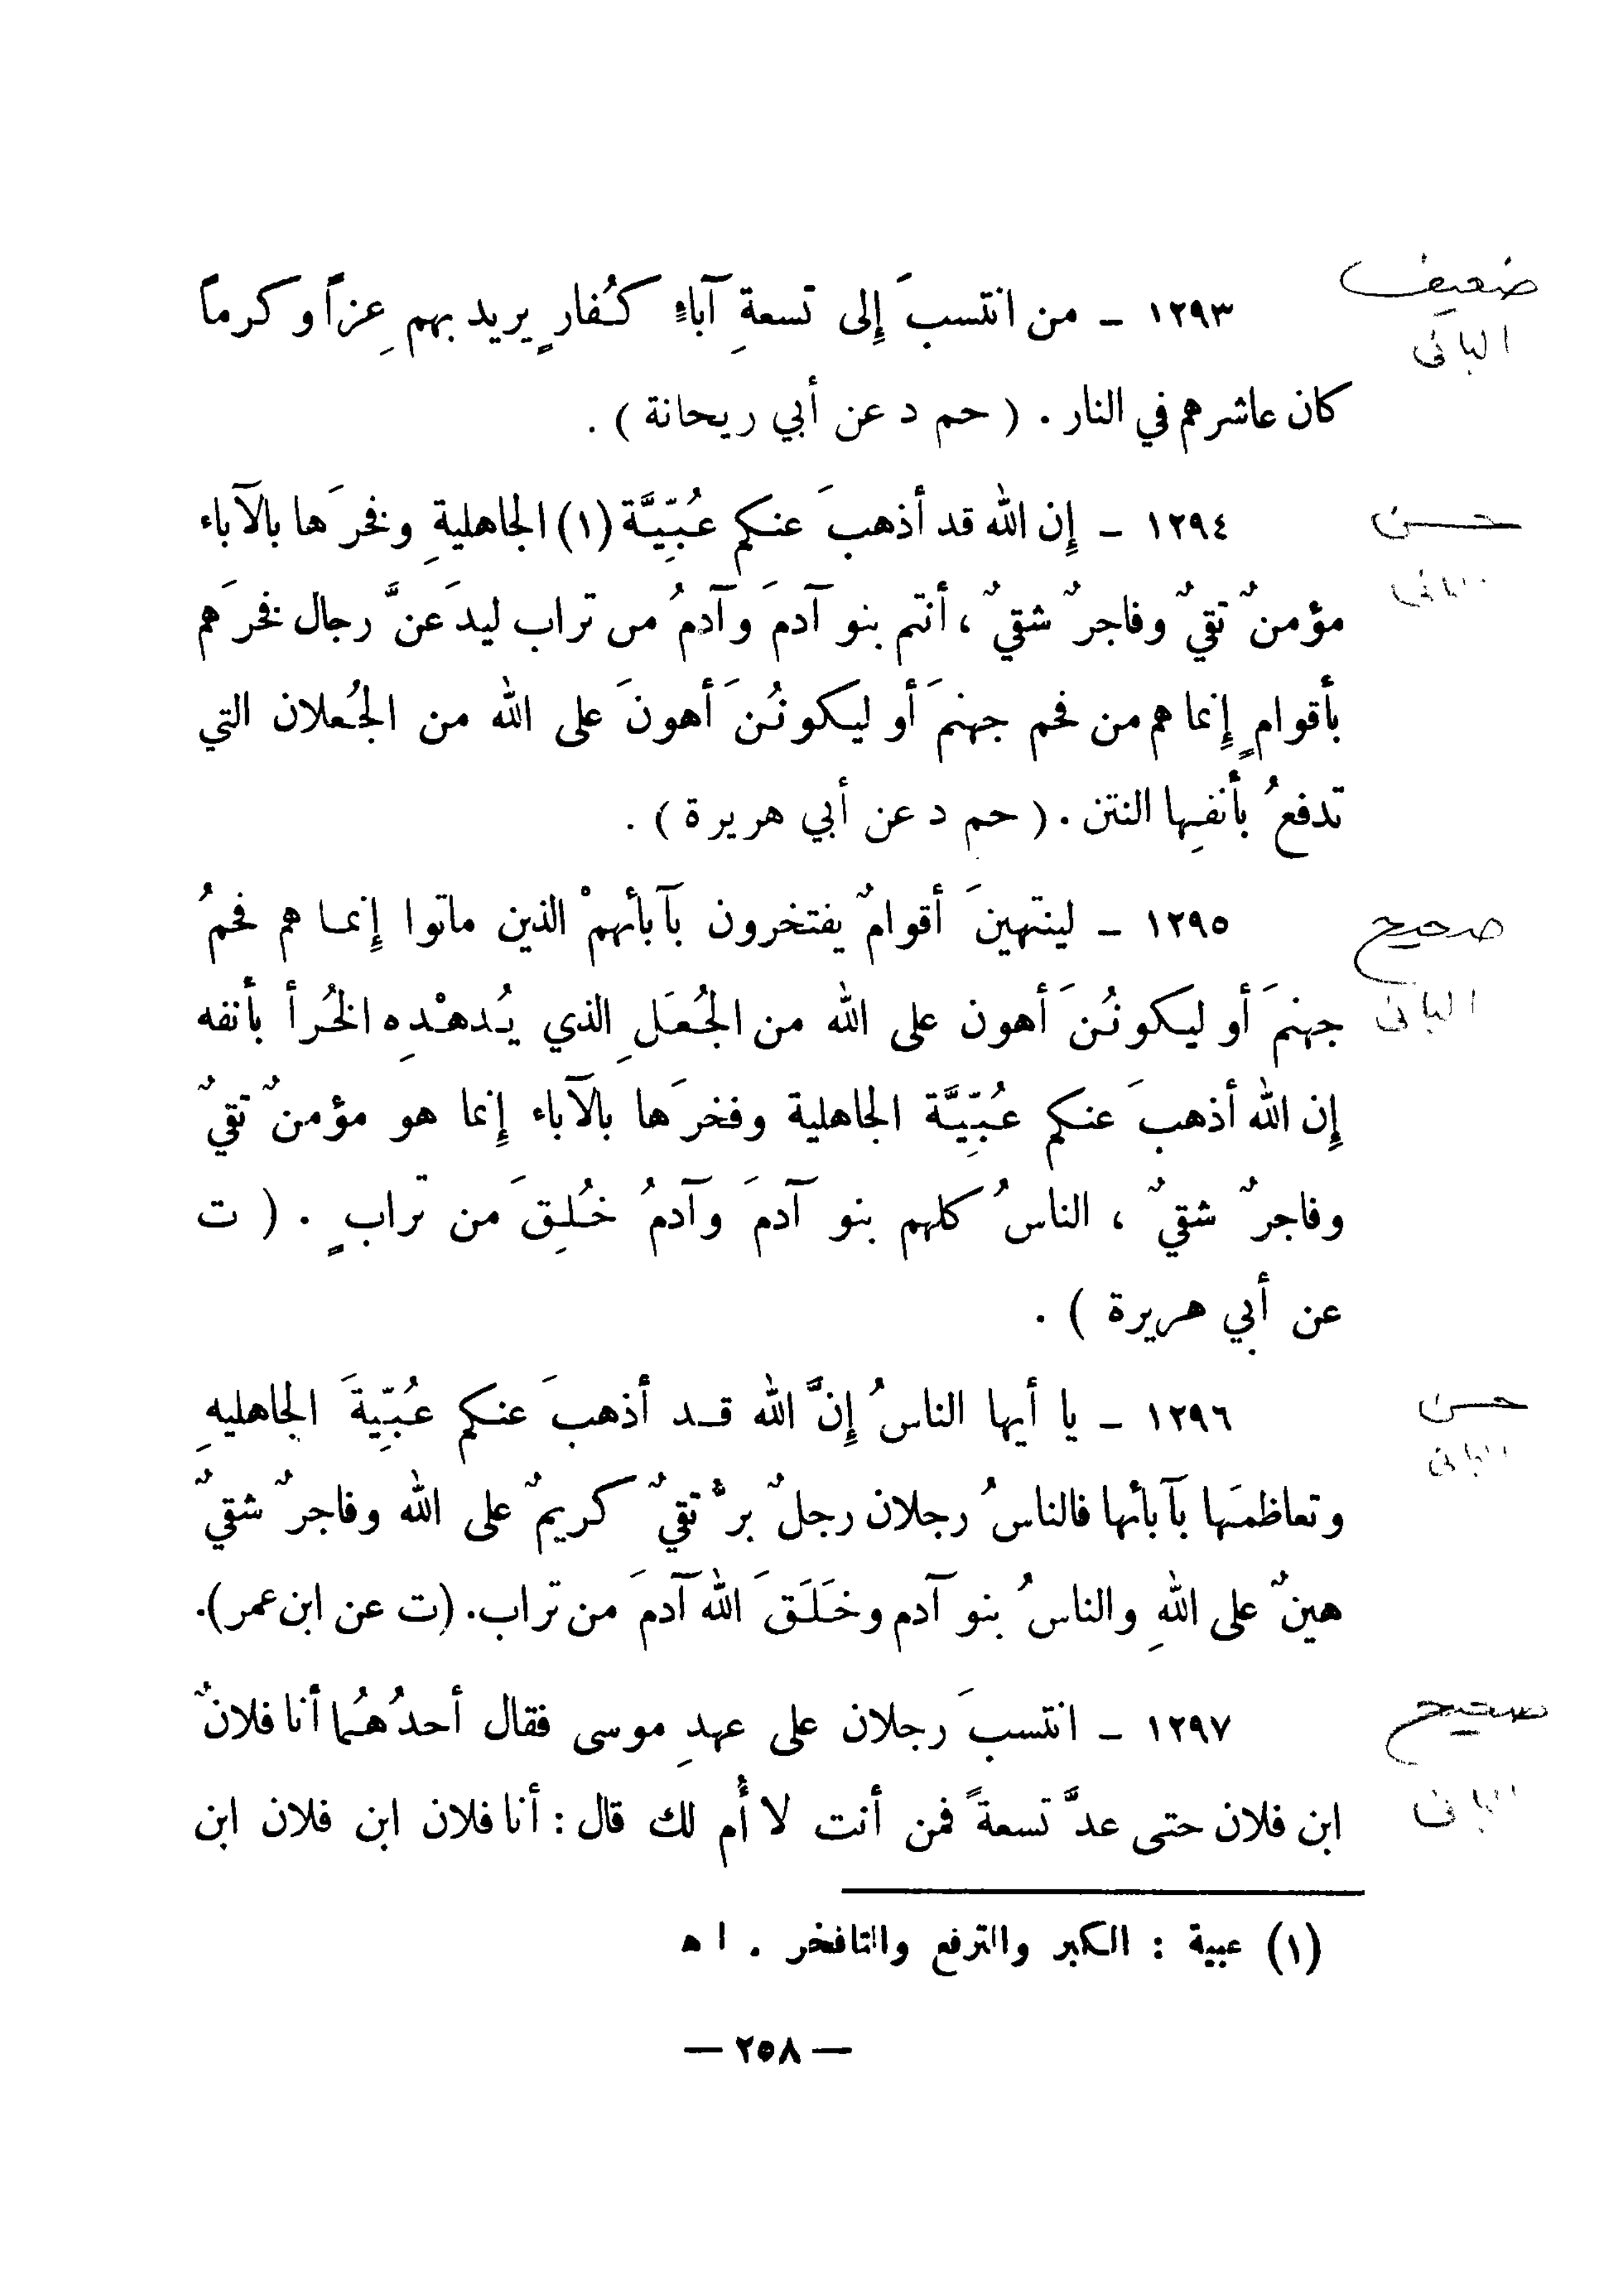 ضعيف
البانى
١٢٩٣ ـ من انتسبَ إِلى تسعةِ آباءٍ كُفارٍ يريد بهم عِزاً وكرماً
كان عاشرهم في النار . ( حم د عن أبي ريحانة ) .
حسن
١٢٩٤ ـ إِن الله قد أذهبَ عنكم عُبِّيَّة (١) الجاهليةِ وفخرَها بالآباء
مؤمنٌ تقيٌ وفاجرٌ شقيٌ ، أنتم بنو آدمَ وآدمُ من تراب ليدَعنَّ رجال فخرَهم
بأقوامٍ إِنما هم من فحم جهنمَ أو ليكونُنَ أهونَ على الله من الجُعلان التي
تدفعُ بأنفِها النتن . ( حم د عن أبي هريرة ) .
صحيح
البانى
١٢٩٥ ـ لينتهينَ أقوامٌ يفتخرون بآبأئهمْ الذين ماتوا إِنما هم فحمُ
جهنمَ أو ليكونُنَ أهون على الله من الجُعَلِ الذي يُدهْدِه الخُرأ بأنفه
إِن الله أذهبَ عنكم عُبِّيَّة الجاهلية وفخرَها بالآباء إِنما هو مؤمنٌ تقيٌ
وفاجرٌ شقيٌ ، الناسُ كلهم بنو آدمَ وآدمُ خُلِقَ من ترابٍ . ( ت
عن أبي هريرة ) .
حسن
البانى
١٢٩٦ ـ يا أيها الناسُ إِنَّ الله قد أذهبَ عنكم عُبِّيةَ الجاهليهِ
وتعاظمَها بآبأئها فالناسُ رجلان رجلٌ برٌ تقيٌ كريمٌ على الله وفاجرٌ شقيٌ
هينٌ على اللهِ والناسُ بنو آدم وخَلَقَ الله آدمَ من تراب. (ت عن ابن عمر).
صحيح
١٢٩٧ ـ انتسبَ رجلان على عهدِ موسى فقال أحدُهُما أنا فلانٌ
ابن فلان حتى عدَّ تسعةً فمن أنت لا أُم لك قال : أنا فلان ابن فلان ابن
(١) عبية : الكبر والترفع والتافخر . ا ه
— ٢٥٨ —